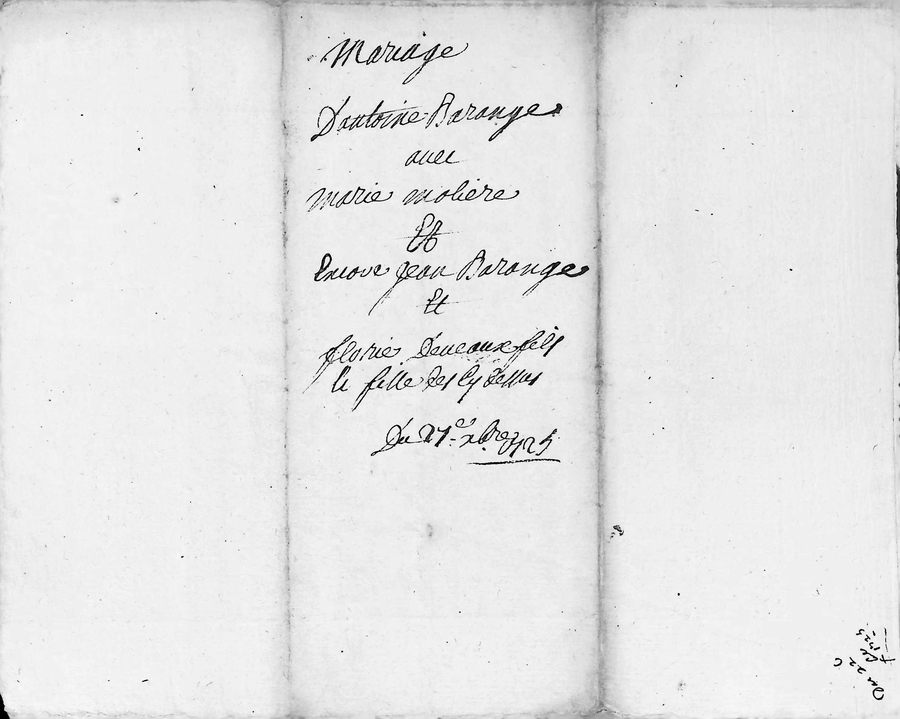 Mariage
D'antoine Barange
avec
marie moliere
Et
Encore jean Barange
Et
florie Deveaux fils
le fille des Cy dessus
Du 27e xbre 1725
Du 22
1725